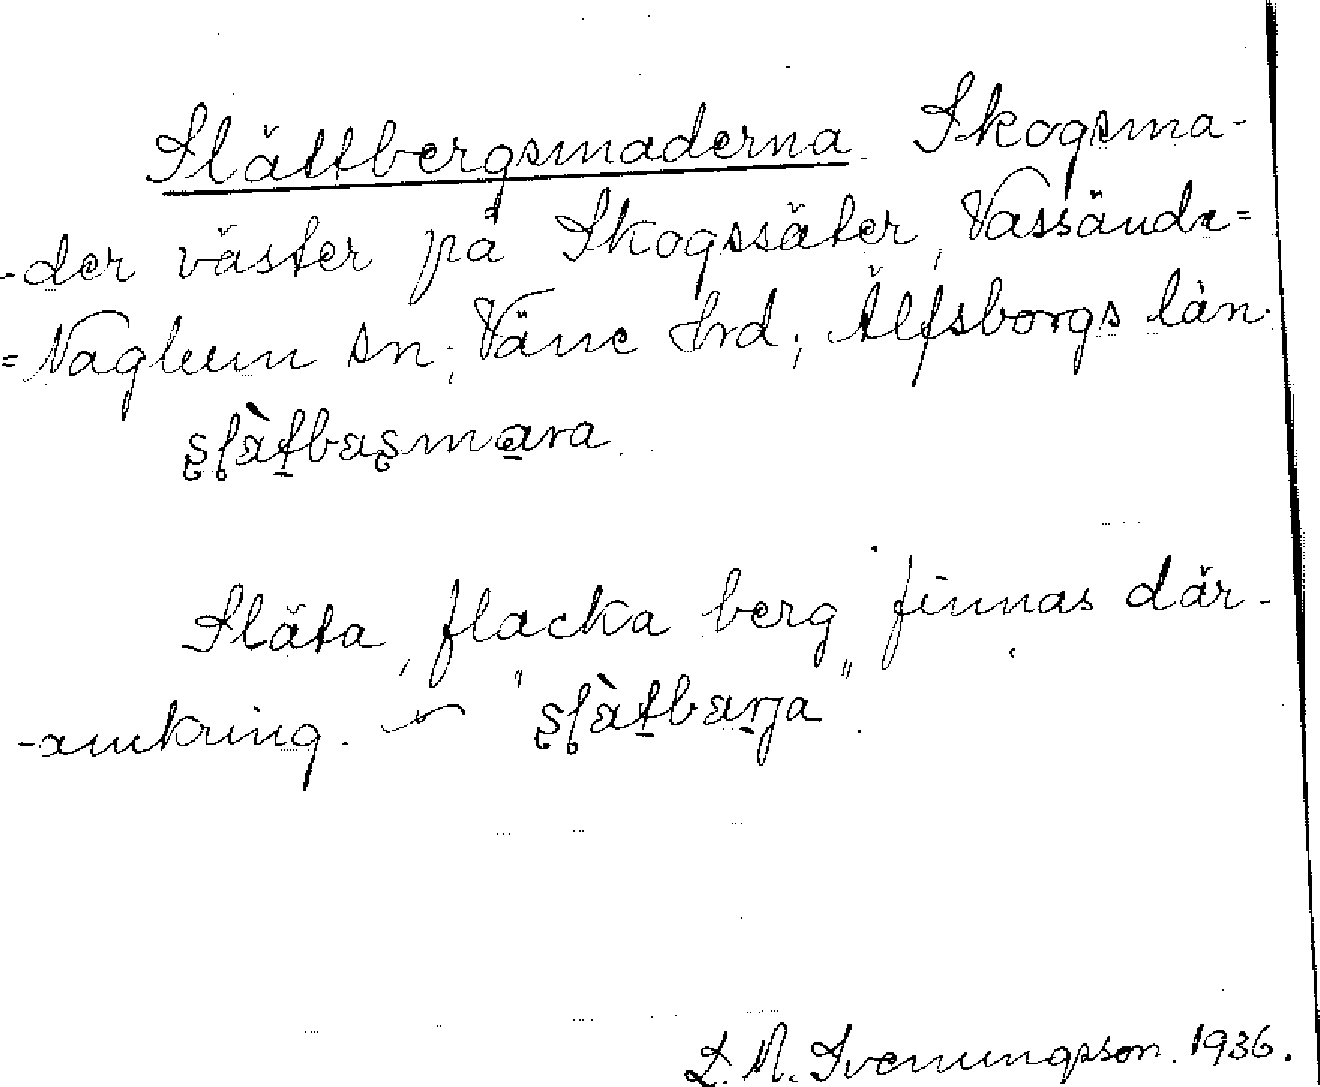 Slättbergsmaderna. Skogsma-
-der väster på Skogssäter, Vassända=
=Naglum sn; Väne hrd; Älfsborgs län.
Släta, flacka berg finnas där-
-omkring.
L. M. Svenungsson. 1936.